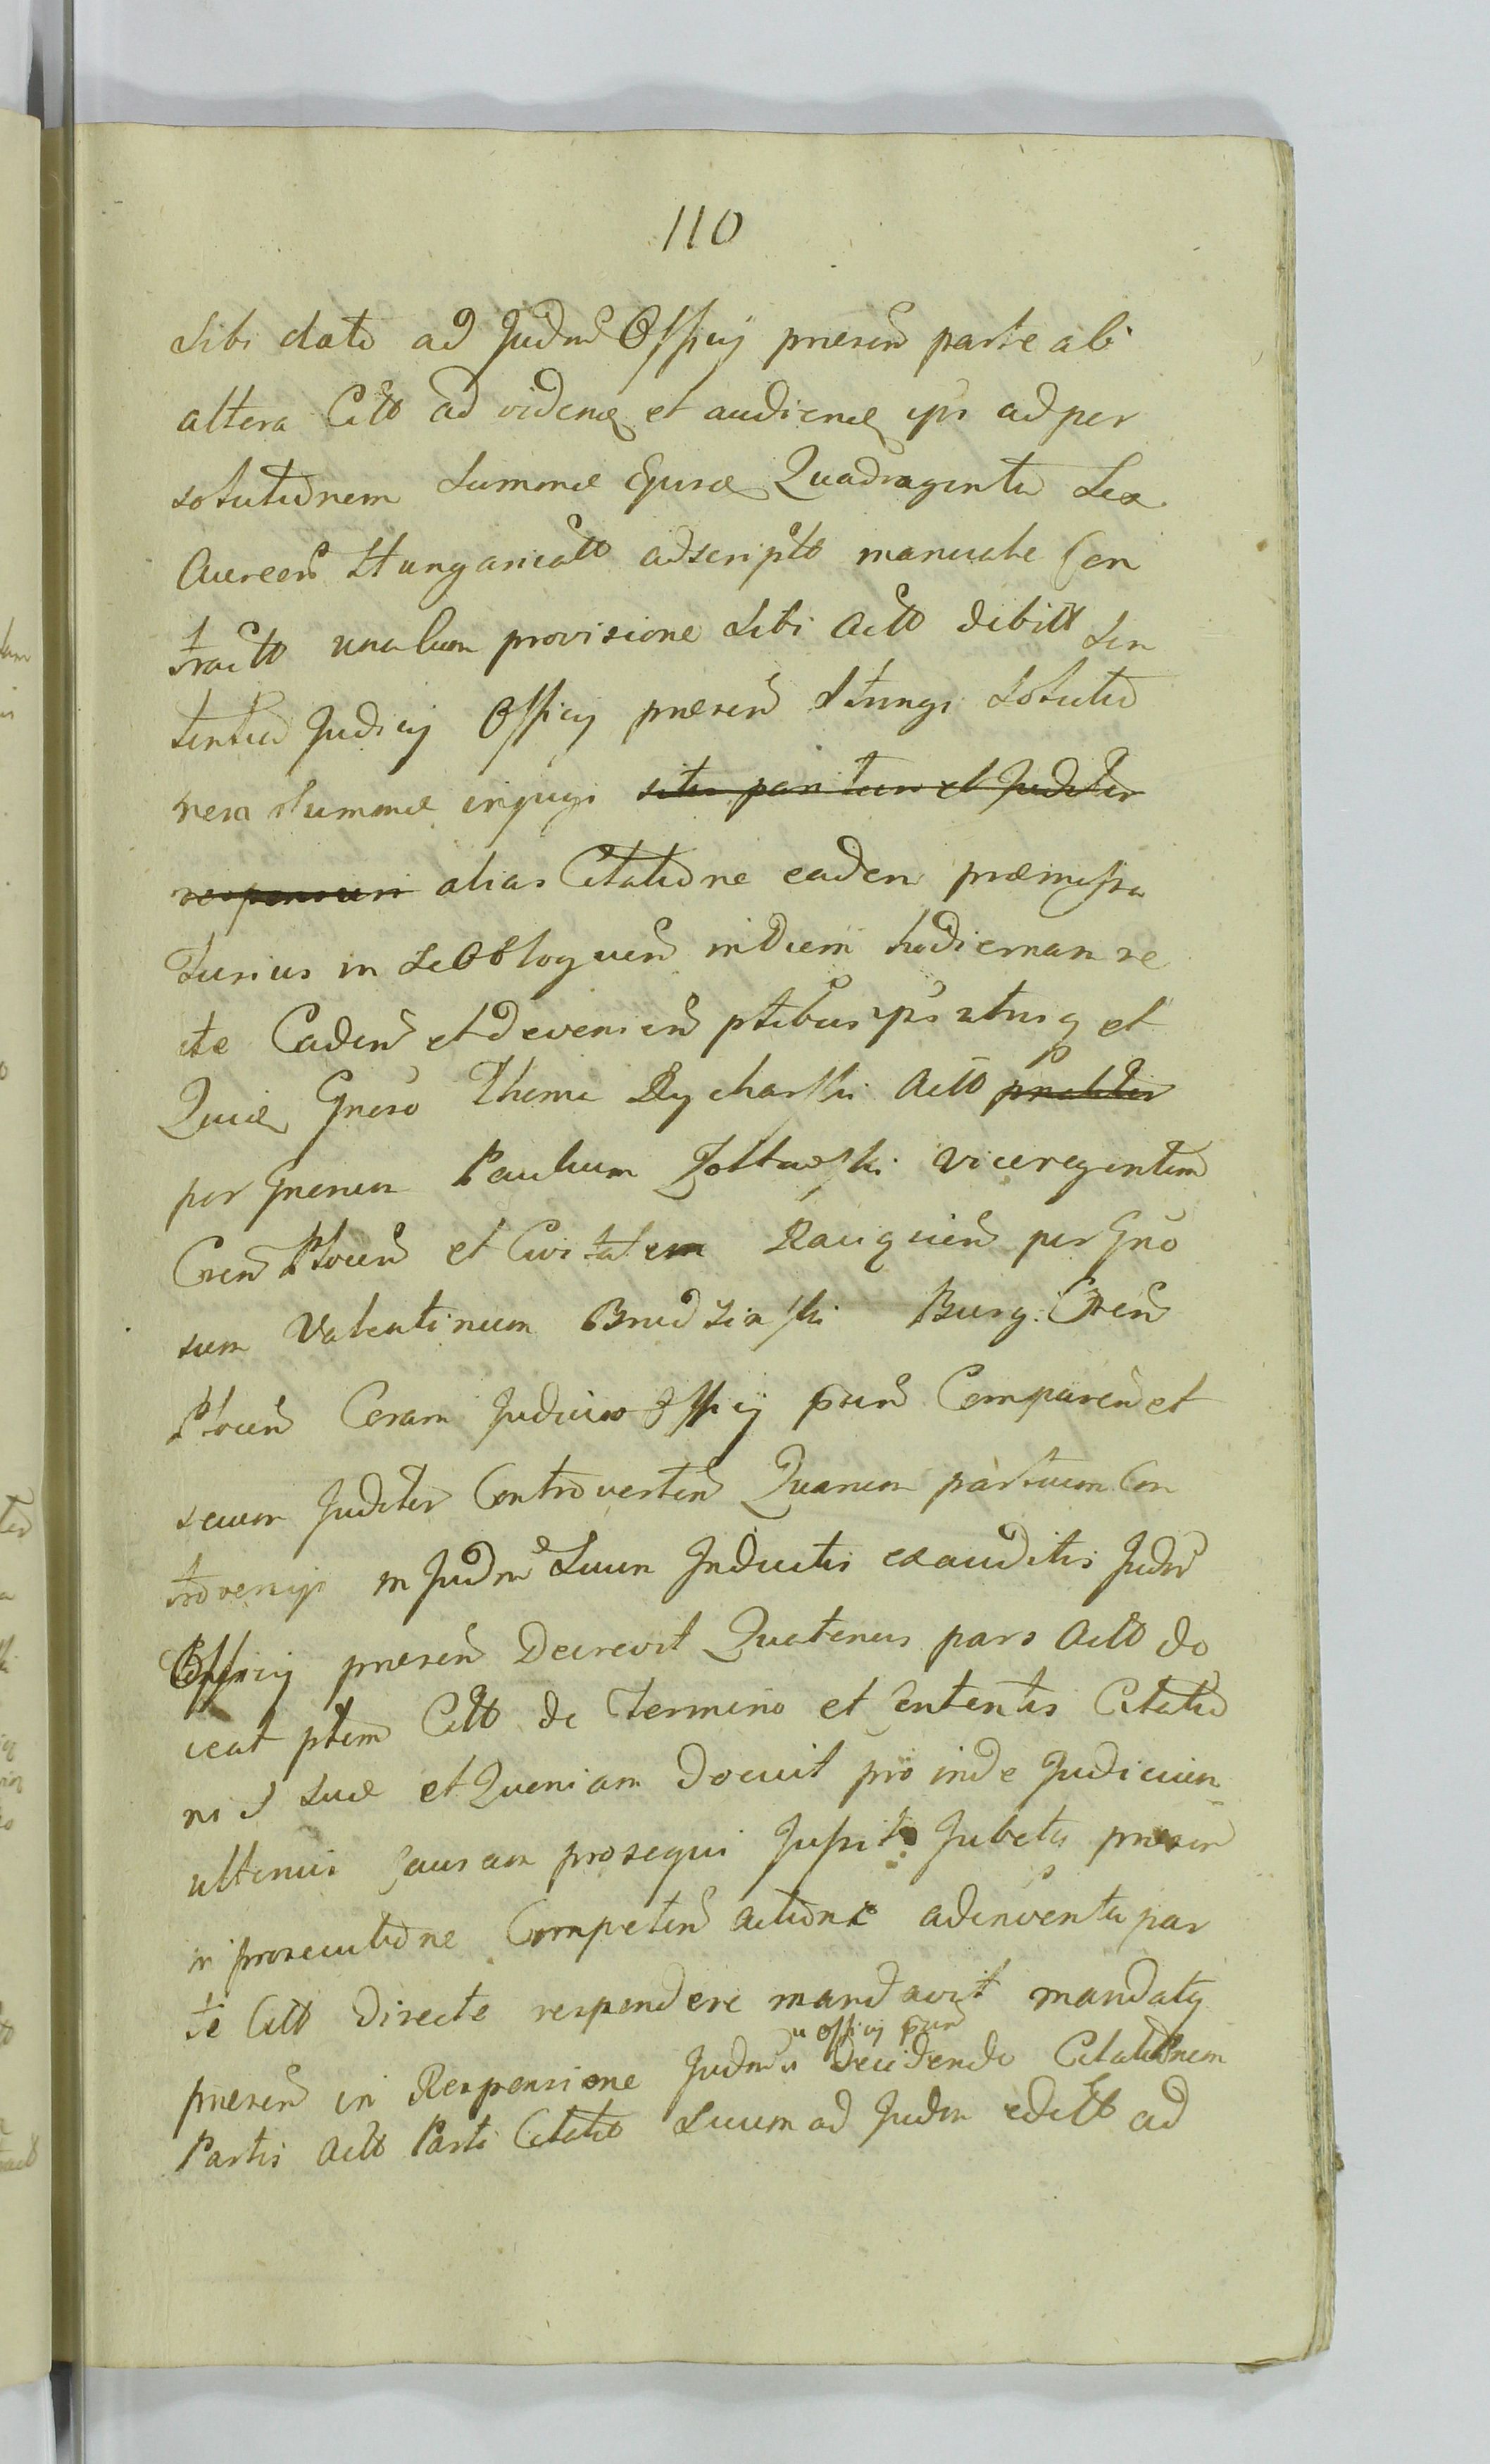 110
Sibi dato ad Judm Officij præsens parte ab
altera Citto ad videndæ et audiendæ ipi ad per
solutionem Summæ Ejusdæ Quadraginta Sex
Aureor Hungaricalto adscripto manuale Con
tracto unacum provisione Sibi Acto debitt Sen
tentia Judicij Officij præsen Stringi Solutio
nem Summæ injungi paritum et Judter
responsuri alias Citatione eadem præmissa
Lusius in se Obloquen in Diem hodiernam re
cte Caden et Devenien ptibus ipis utrisq et
Quidæ Gneroso Thoma Rycharski Acto
per Gnerosum Paulum Zoltowski viceregentem
Cren Plocen et Civitatem Raciąnien per Gnero
sum Valentinum Brudzinski Burg: Cren
Plocen Coram Judicio Officij præn Comparen et
secum Judter Controverten Quarum partium Con
troversijs in Judm Suum Inductis exauditis Judm
Officij præsen Decrevit Quatenus pars Acto do
ceat ptem Citto de Termino et Contentis Citatio
nis Suæ et Quoniam Docuit pro inde Judicium
ulterius Causam prosequi Jussit Jubetis præsen
in prosecutione Competen actione adinventa par
te Citto Directe respondere mandavit mandatq
præsen in Responsione Judm Decidendo Citationem
officij præn
Partis Acto Parti Citato Suum ad Judm edito ad